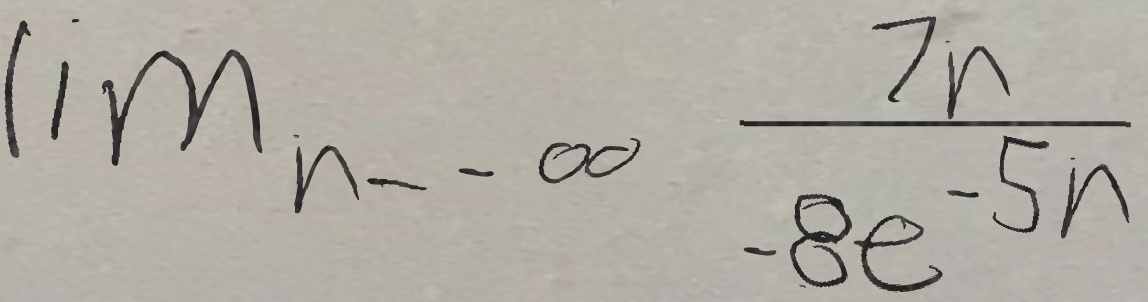 lim n - -∞ 7n / -8e^-5n